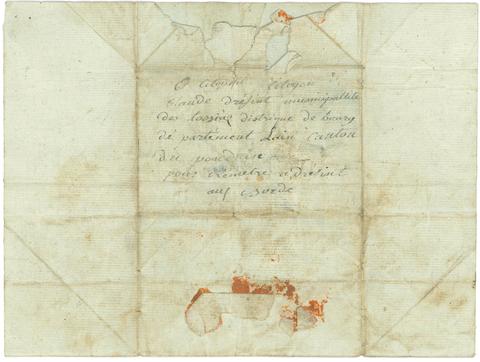 O Citoyen Citoyen
Claude drésint municipallité
des distrique de bourg
dé partément Lain Canton
du pondain
pour remétre a drésint
aux